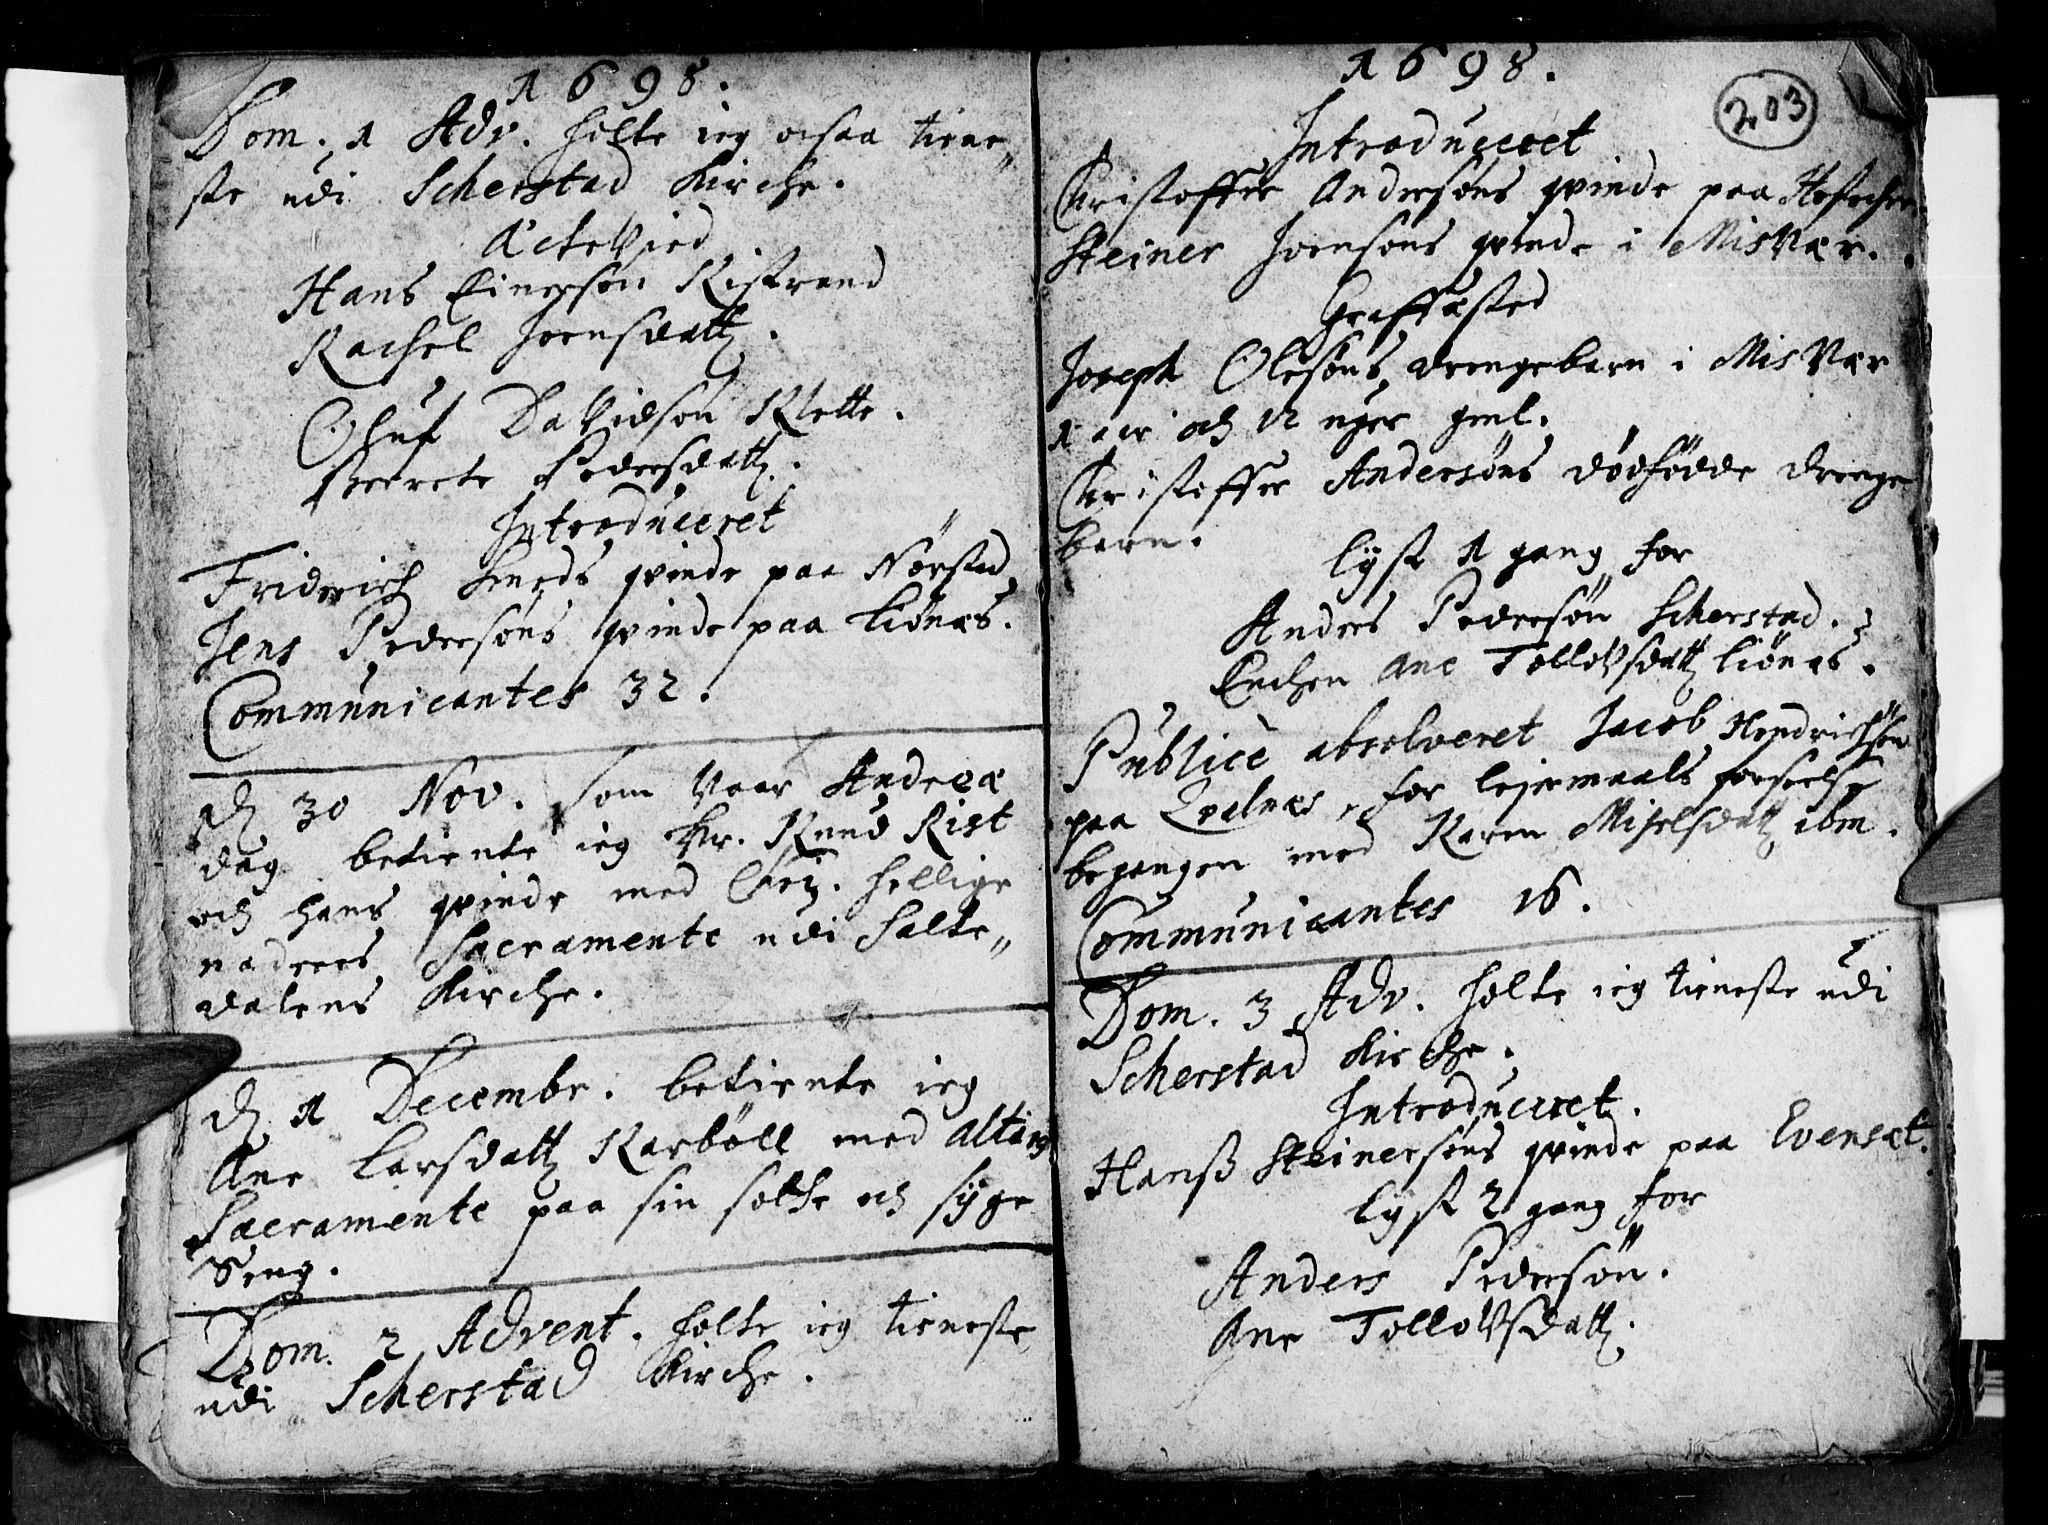 1698.
Dom. 1 Adv. holte ieg ocsaa tiene„
ste udi Scherstad Kirche.
Ectevied
Hans Einersön Ristrand
Rachel Joensdatt.
Oluf Davidsøn Klette.
Beerete Pedersdatt.
Introduceret
Friderich Smeds qvinde paa Nørstad
Jens Pedersøns qvinde paa Liønæs.
Communicantes 32.
d 30 Nov. som vaar Andreæ
dag betiente ieg Hr. Knud Rist
och hans qvinde med høy. hellige
nadens Sacramente udi Salte„
dalens Kirche.
d 1 Decembr. betiente ieg
Ane Larsdatt Karbøll med altars
Sacramente paa sin sotte och syge
Seng.
Dom. 2 Advent. holte ieg tieneste
udi Scherstad Kirche.
1698.
203
Introduceret
Christoffer Andersøns qvinde paa
Steiner Joensøns qvinde i Misvær.
Graffæsted
Joseph Olesøns drengebarn i Misvær
1 aar och 12 uger gml.
Christoffer Andersøns dødfødde drenge
barn.
Lyst 1 gang for
Anders Pedersøn Scherstad.
Enchen Ane Tollovsdatt Liønæs.
Publice absolveret Jacob Hendrichsøn
paa Lodnæs, for leiermaals forseelse
begangen med Karen Michelsdatt ibm.
Communicantes 16.
Dom. 3 Adv. holte ieg tieneste udi
Scherstad Kirche.
Introduceret.
Hanß Steinersøns qvinde paa Evensæt.
Lyst 2 gang for
Anders Pedersøn.
Ane Tollovsdatt.